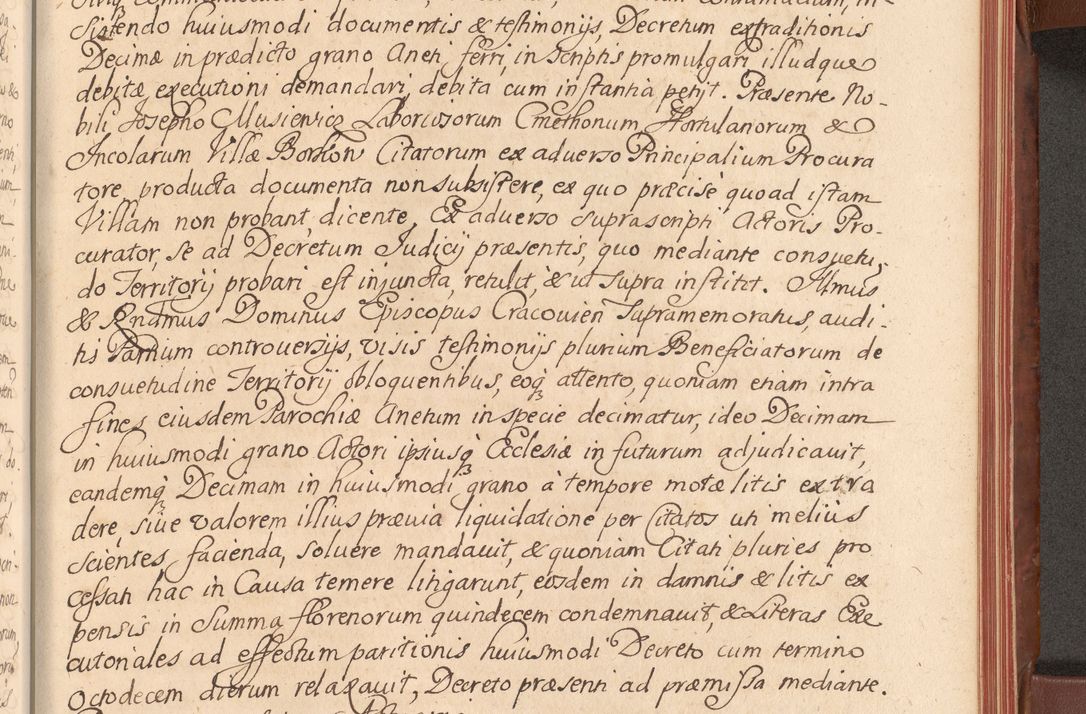 Sistendo huiusmodi documentis & testimonijs, Decretum extraditionis
Decimæ in prædicto grano Aneti ferri, in scriptis promulgari illudque
debitæ executioni demandari, debita cum instantia petijt. Præsente No-
bili Josepho Musiewicz Laboriosorum Cmethonum Hortulanorum &
Incolarum Villæ Citatorum ex adverso Principalium Procura
tore, producta documenta non subsistere, ex quo præcise quoad istam
Villam non probant, dicente, Ex adverso suprascripti Actoris Pro-
curator, se ad Decretum Judicij præsentis, quo mediante consuetu-
do Territorij probari est injuncta, retulit, & ut supra institit. Illmus
& Rndmus Dominus Episcopus Cracovien supramemoratus, audi-
tis Partium controversijs, visis testimonijs plurium Beneficiatorum de
consuetudine Territorij obloquentibus, eoq attento, quoniam etiam intra
fines eiusdem Parochiæ Anetum in specie decimatur, ideo Decimam
in huiusmodi grano Actori ipsiusq Ecclesiæ in futurum adjudicavit,
eandemq Decimam in huiusmodi grano à tempore motæ litis extra
dere, siue valorem illius prævia liquidatione per Citatos uti melius
scientes facienda, solvere mandavit, & quoniam Citati pluries pro
cessati hac in Causa temere litigarunt, eosdem in damnis & litis ex
pensis in Summa florenorum quindecem condemnavit, & Literas Exe
cutoriales ad effectum paritionis huiusmodi Decreto cum termino
Octodecem dierum relaxavit, Decreto præsenti ad præmissa mediante.